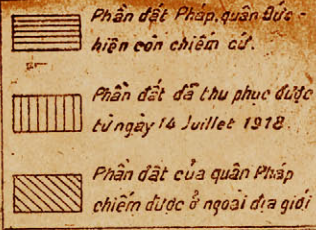 Phần đất Pháp, quân Đức
hiện còn chiếm cứ.
Phần đất đã thu phục được
từ ngày 14 Juillet 1918.
Phần đất của quân Pháp
chiếm được ở ngoài địa giới